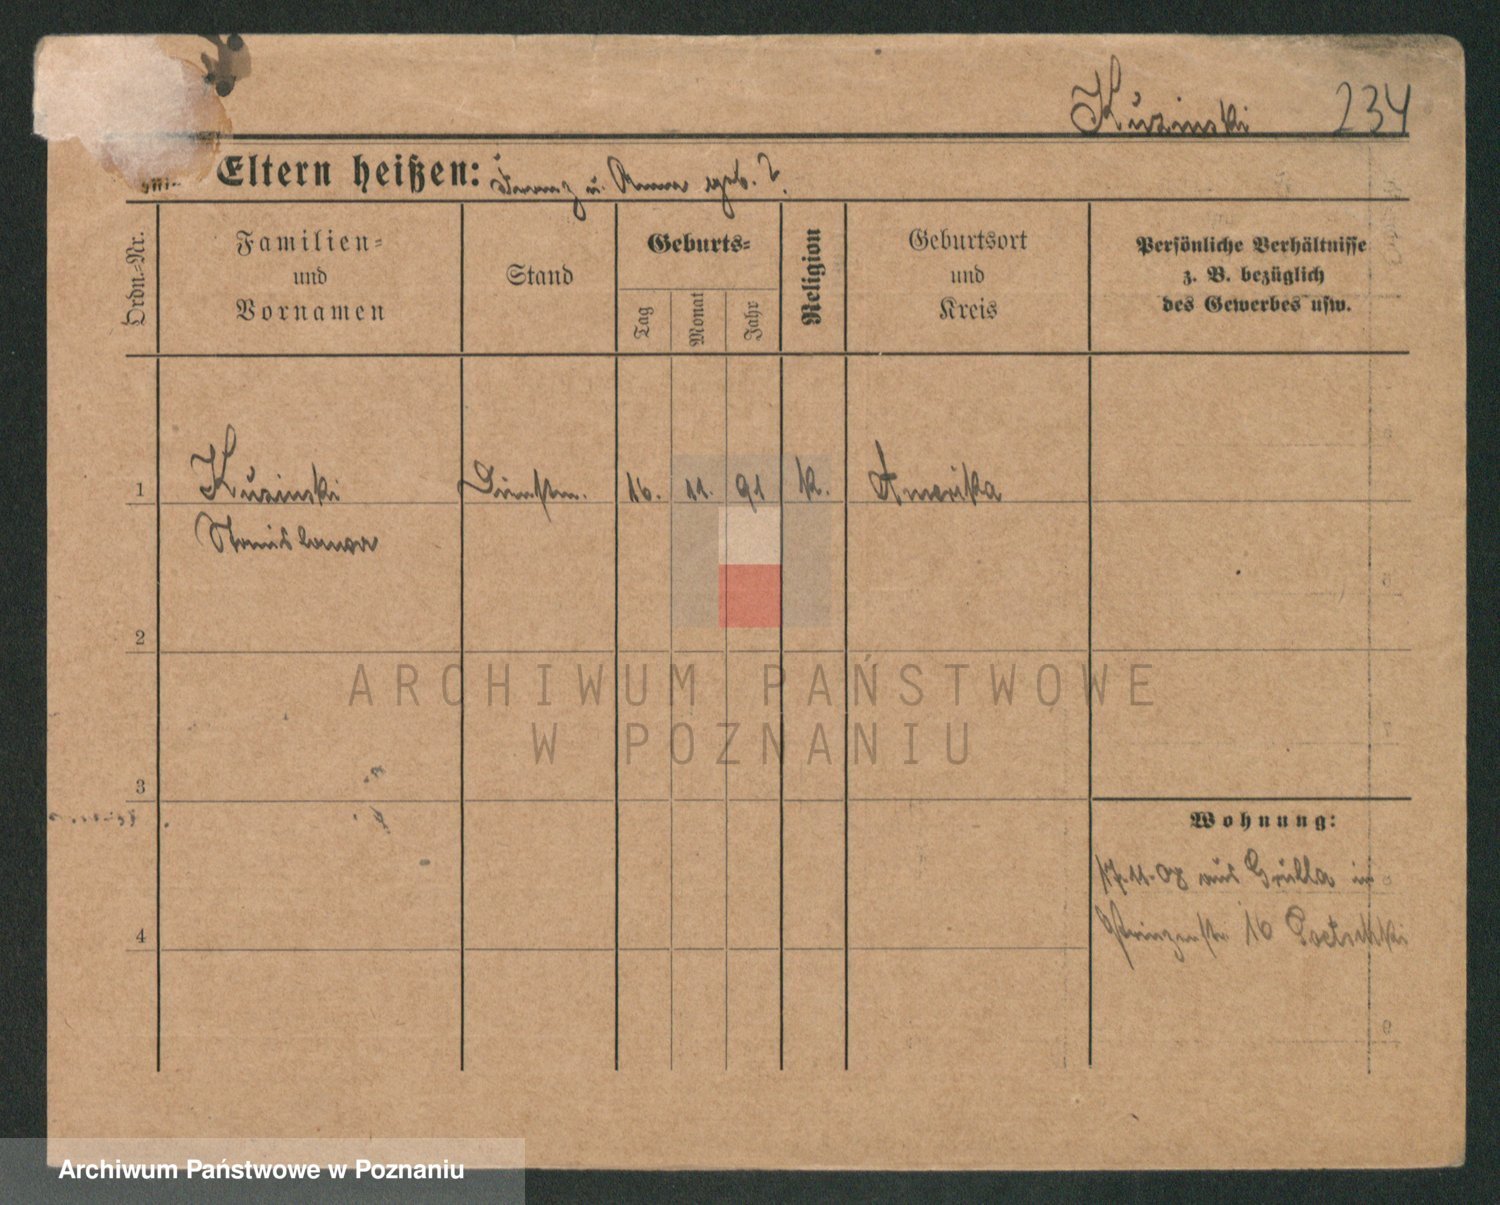 Kuzinski 234
Eltern heißen: Franz u. Anna geb. ?
Ordn.-Nr.
Familien-
und
Vornamen
Stand
Geburts-
Tag
Monat
Jahr
Religion
Geburtsort
und
Kreis
Persönliche Verhältnisse
z. B. bezüglich
des Gewerbes usw.
1 Kuzinski Dienstm. 16. 11. 91 k. Amerika
Stanislawa
2
ARCHIWUM PAŃSTWOWE
W POZNANIU
3
Wohnung:
17.11.08 aus in
4 Prinzenstr. 16
Archiwum Państwowe w Poznaniu